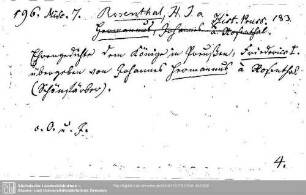 196. Misc. 7. Rosenthal, H. J. a
Hermannus, Johannes à Rosenthal.
Hist. Pruss. 183.
Ehrengedichte dem Könige in Preußen, Friederico I.
übergeben von Johannes Hermannus à Rosenthal
(Schönfärber).
o. O. u. J.
4.
Sächsische Landesbibliothek -
Staats- und Universitätsbibliothek Dresden